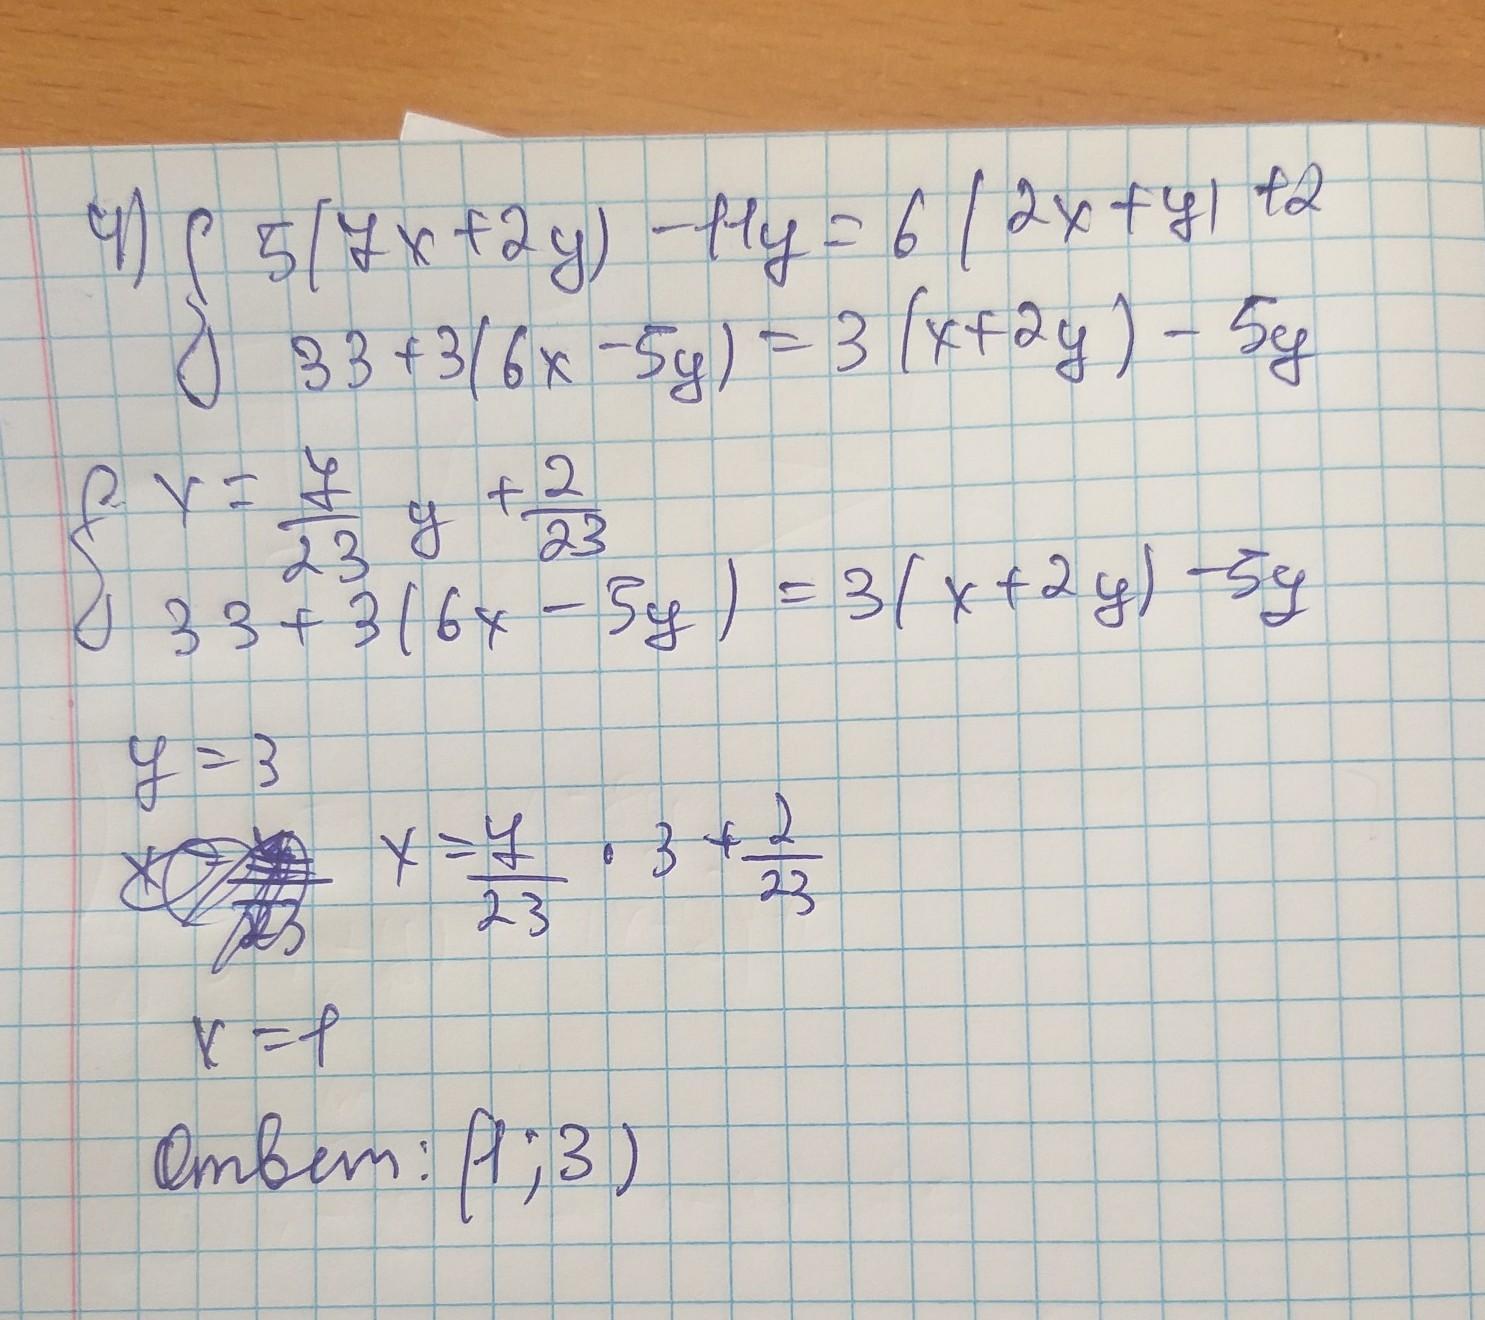 4) { 5(7x+2y) -11y = 6(2x+y)+2
33+3(6x-5y) = 3(x+2y) - 5y
{ x = 7/23 y + 2/23
33+3(6x-5y) = 3(x+2y) -5y
y = 3
x = 7/23 · 3 + 2/23
x = 1
Ответ: (1; 3)